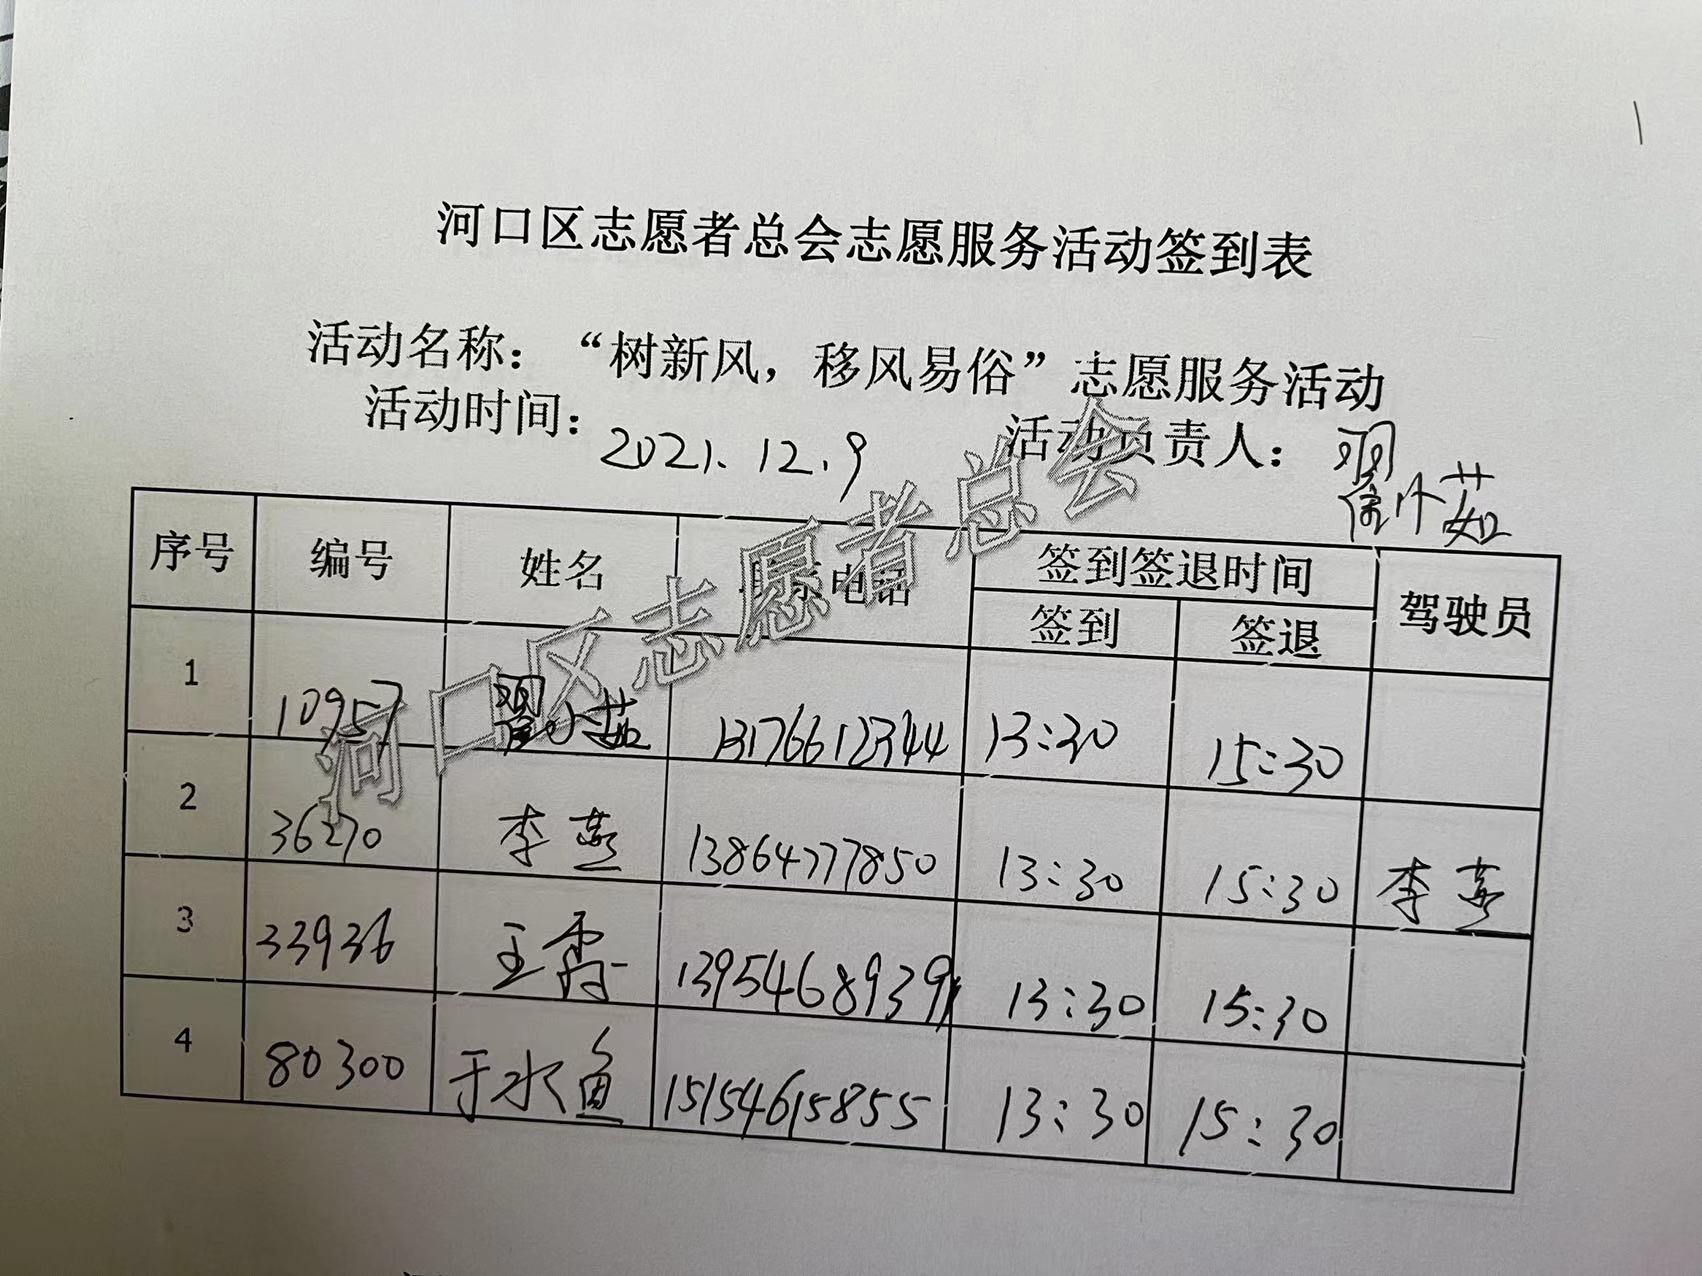 河口区志愿者总会志愿服务活动签到表
活动名称：“树新风，移风易俗”志愿服务活动
活动时间：2021.12.9 活动负责人：翟小茹
序号 编号 姓名 联系电话 签到签退时间 驾驶员
签到 签退
1 10957 翟小茹 13176612344 13:30 15:30
2 36270 李燕 13864777850 13:30 15:30 李燕
3 33936 王霞 13954689391 13:30 15:30
4 80300 于水鱼 15154615855 13:30 15:30
河口区志愿者总会